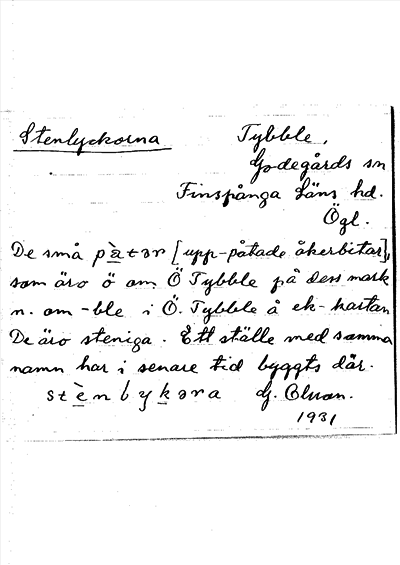 Stenlyckorna
Tybble,
Godegårds sn
Finspånga läns hd.
Ögl.
De små pàtər [upp-påtade åkerbitar],
som äro ö om Ö Tybble på dess mark
n. om -ble i Ö. Tybble å ek-kartan
De äro steniga. Ett ställe med samma
namn har i senare tid byggts där.
stènlykəra G.
1931